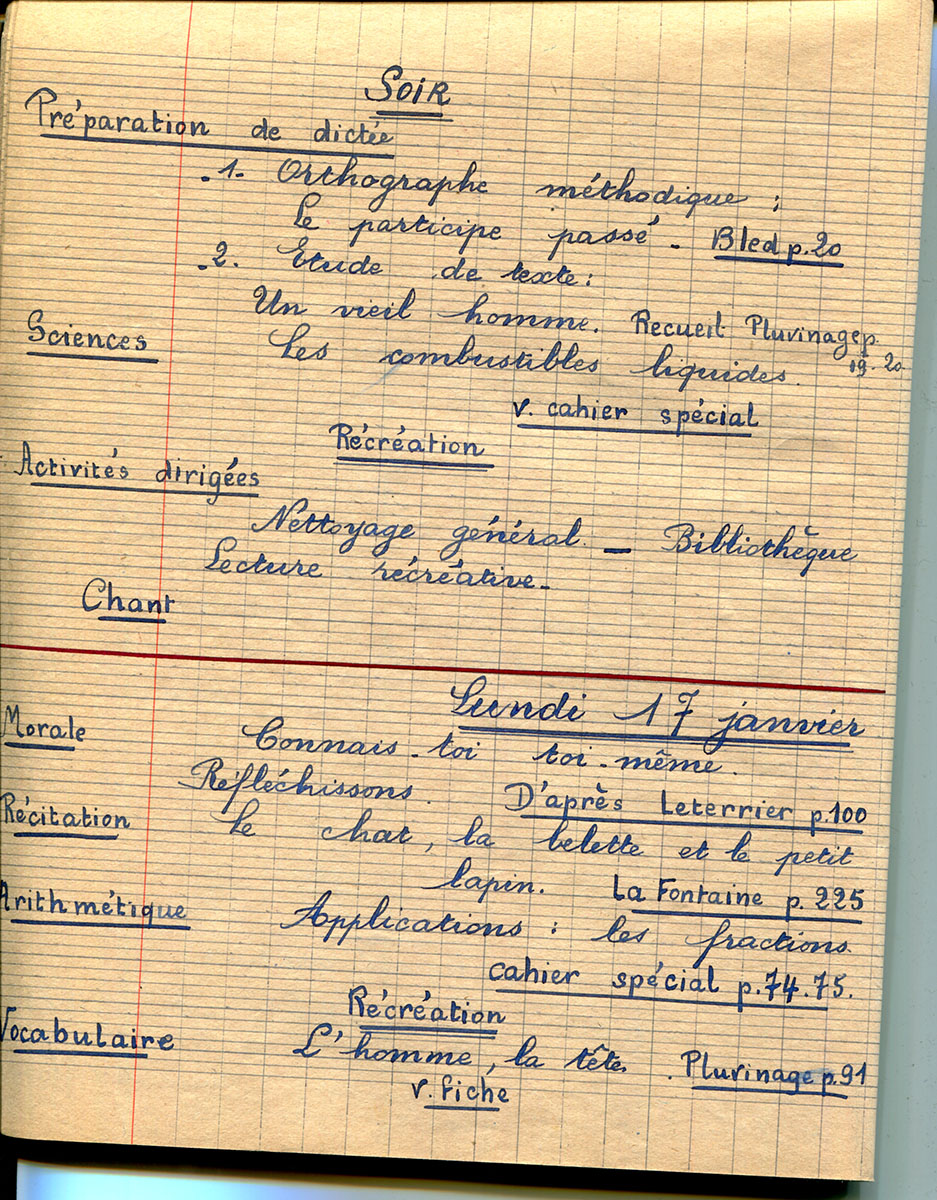 Soir
Préparation de dictée
.1. Orthographe méthodique :
Le participe passé - Bled p.20
.2. Etude de texte :
Un vieil homme. Recueil Pluvinage p.
19.20
Sciences Les combustibles liquides.
v. cahier spécial
Récréation
Activités dirigées
Nettoyage général - Bibliothèque
Lecture récréative -
Chant
Lundi 17 janvier
Morale Connais-toi toi-même.
Réfléchissons. D'après Leterrier p.100
Récitation Le chat, la belette et le petit
lapin. La Fontaine p. 225
Arithmétique Applications : les fractions.
cahier spécial p.74.75.
Récréation
Vocabulaire L'homme, la tête. Pluvinage p.91
v. fiche